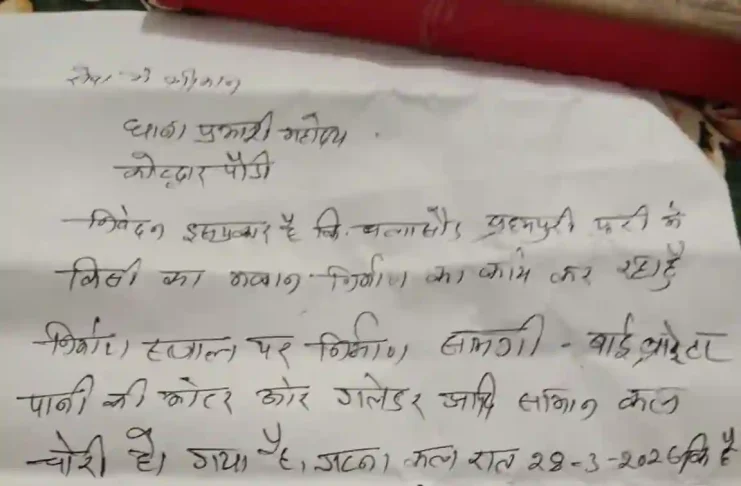 सेवा में श्रीमान
थाना प्रभारी महोदय
कोटद्वार पौडी
निवेदन इसप्रकार है कि बलासौड़ ब्रहमपुरी में
किसी का मकान निर्माण का काम कर रहा हुँ
निर्माण स्थल पर निर्माण सामग्री - बाईब्रेटर
पानी की मोटर और गलेडर आदि सामान कल
चोरी हो गया है, घटना कल रात 28-3-2026 कि है